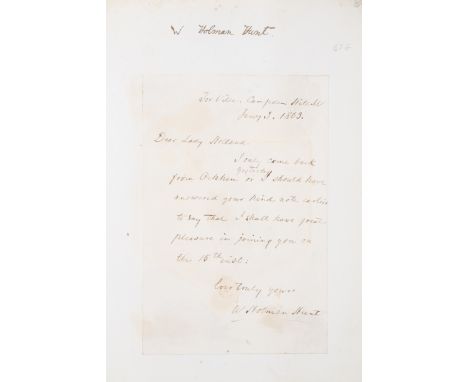 W Holman Hunt.
Tor Villa. Campden Hill. W
Jany 3. 1863.
Dear Lady Holland
I only came back
yesterday
from or I should have
answered your kind note earlier
to say that I shall have great
pleasure in joining you on
the 15th inst:
Yours truly yours
W Holman Hunt